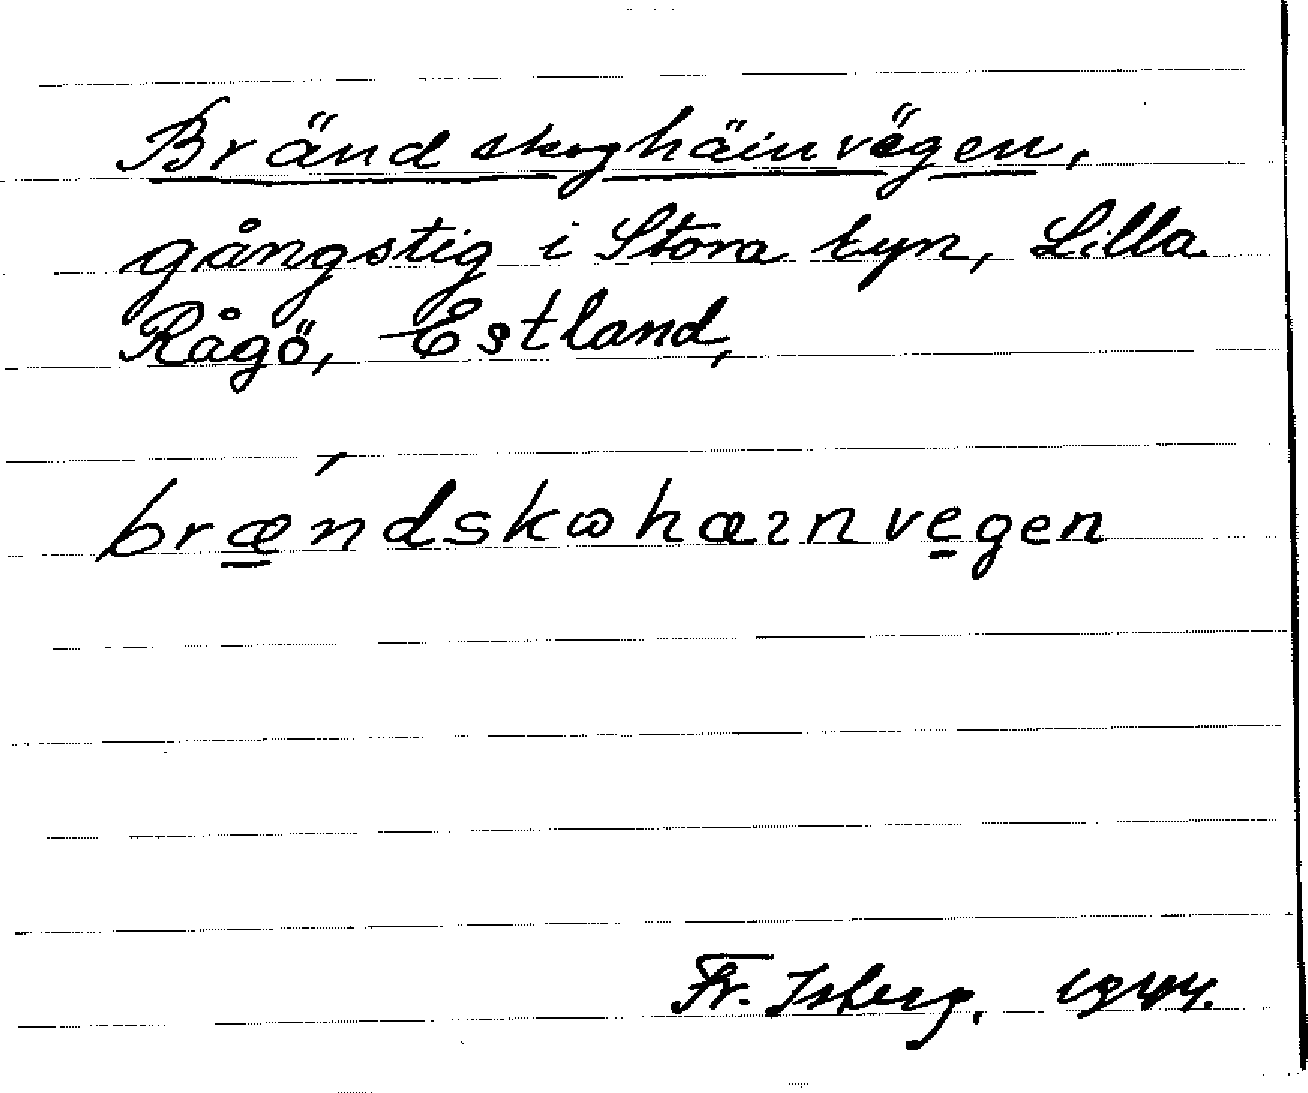 Brändskoghäinvägen,
gångstig i Stora byn, Lilla
Rågö, Estland,
brændskωhæɪnvegen
Fr. Isberg. 1944.